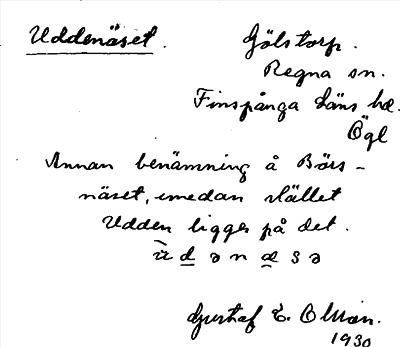 Uddenäset. Gölstorp.
Regna sn.
Finspånga läns hd.
Ögl
Annan benämning å Börs-
näset, emedan stället
Udden ligger på det.
Gustaf E. Olsson.
1930